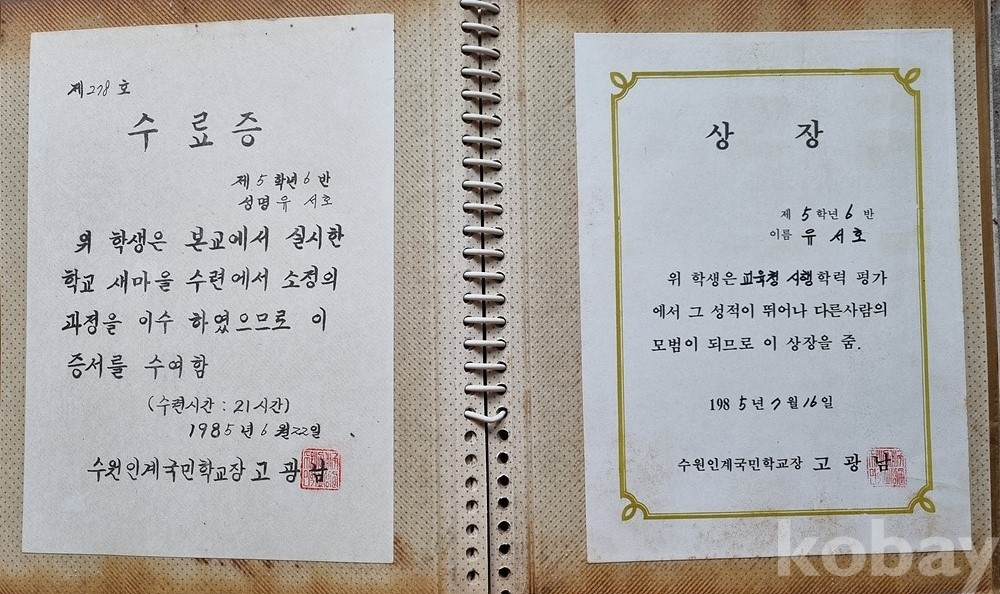 제278호
수료증
제5학년6반
성명 유서호
위 학생은 본교에서 실시한
학교 새마을 수련에서 소정의
과정을 이수 하였으므로 이
증서를 수여함
(수련시간 : 21시간)
1985년 6월22일
수원인계국민학교장 고광남
상장
제5학년6반
이름 유서호
위 학생은 교육청 시행학력 평가
에서 그 성적이 뛰어나 다른사람의
모범이 되므로 이 상장을 줌.
1985년 7월 16일
수원인계국민학교장 고광남
kobay